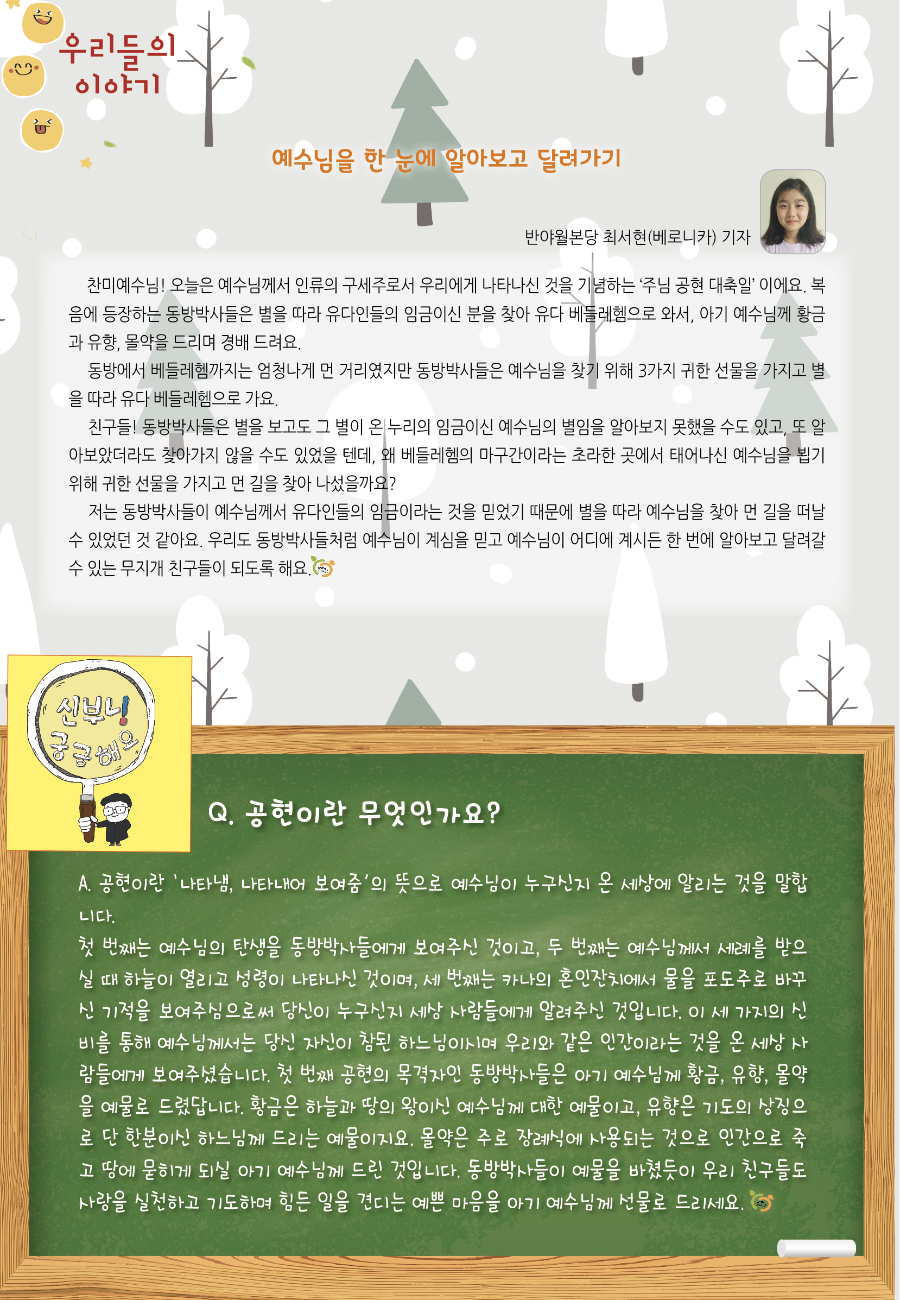 우리들의
이야기
예수님을 한 눈에 알아보고 달려가기
반야월본당 최서현(베로니카) 기자
찬미예수님! 오늘은 예수님께서 인류의 구세주로서 우리에게 나타나신 것을 기념하는 ‘주님 공현 대축일’ 이에요. 복
음에 등장하는 동방박사들은 별을 따라 유다인들의 임금이신 분을 찾아 유다 베들레헴으로 와서, 아기 예수님께 황금
과 유향, 몰약을 드리며 경배 드려요.
동방에서 베들레헴까지는 엄청나게 먼 거리였지만 동방박사들은 예수님을 찾기 위해 3가지 귀한 선물을 가지고 별
을 따라 유다 베들레헴으로 가요.
친구들! 동방박사들은 별을 보고도 그 별이 온 누리의 임금이신 예수님의 별임을 알아보지 못했을 수도 있고, 또 알
아보았더라도 찾아가지 않을 수도 있었을 텐데, 왜 베들레헴의 마구간이라는 초라한 곳에서 태어나신 예수님을 뵙기
위해 귀한 선물을 가지고 먼 길을 찾아 나섰을까요?
저는 동방박사들이 예수님께서 유다인들의 임금이라는 것을 믿었기 때문에 별을 따라 예수님을 찾아 먼 길을 떠날
수 있었던 것 같아요. 우리도 동방박사들처럼 예수님이 계심을 믿고 예수님이 어디에 계시든 한 번에 알아보고 달려갈
수 있는 무지개 친구들이 되도록 해요.
신부님!
궁금해요
Q. 공현이란 무엇인가요?
A. 공현이란 ‘나타냄, 나타내어 보여줌’의 뜻으로 예수님이 누구신지 온 세상에 알리는 것을 말합
니다.
첫 번째는 예수님의 탄생을 동방박사들에게 보여주신 것이고, 두 번째는 예수님께서 세례를 받으
실 때 하늘이 열리고 성령이 나타나신 것이며, 세 번째는 카나의 혼인잔치에서 물을 포도주로 바꾸
신 기적을 보여주심으로써 당신이 누구신지 세상 사람들에게 알려주신 것입니다. 이 세 가지의 신
비를 통해 예수님께서는 당신 자신이 참된 하느님이시며 우리와 같은 인간이라는 것을 온 세상 사
람들에게 보여주셨습니다. 첫 번째 공현의 목격자인 동방박사들은 아기 예수님께 황금, 유향, 몰약
을 예물로 드렸답니다. 황금은 하늘과 땅의 왕이신 예수님께 대한 예물이고, 유향은 기도의 상징으
로 단 한분이신 하느님께 드리는 예물이지요. 몰약은 주로 장례식에 사용되는 것으로 인간으로 죽
고 땅에 묻히게 되실 아기 예수님께 드린 것입니다. 동방박사들이 예물을 바쳤듯이 우리 친구들도
사랑을 실천하고 기도하며 힘든 일을 견디는 예쁜 마음을 아기 예수님께 선물로 드리세요.